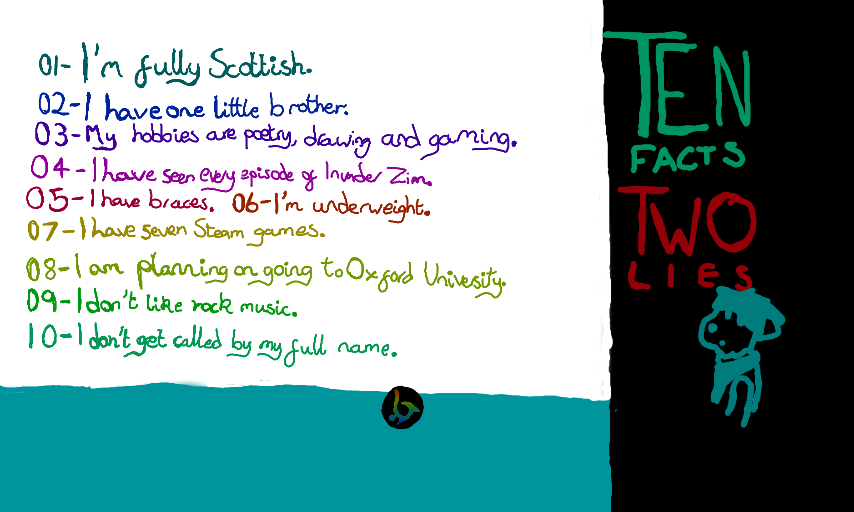 01-I'm fully Scottish.
02-I have one little brother.
03-My hobbies are poetry, drawing and gaming.
04-I have seen every episode of Invader Zim.
05-I have braces. 06-I'm underweight.
07-I have seven Steam games.
08-I am planning on going to Oxford Univesity.
09-I don't like rock music.
10-I don't get called by my full name.
TEN
FACTS
TWO
LIES